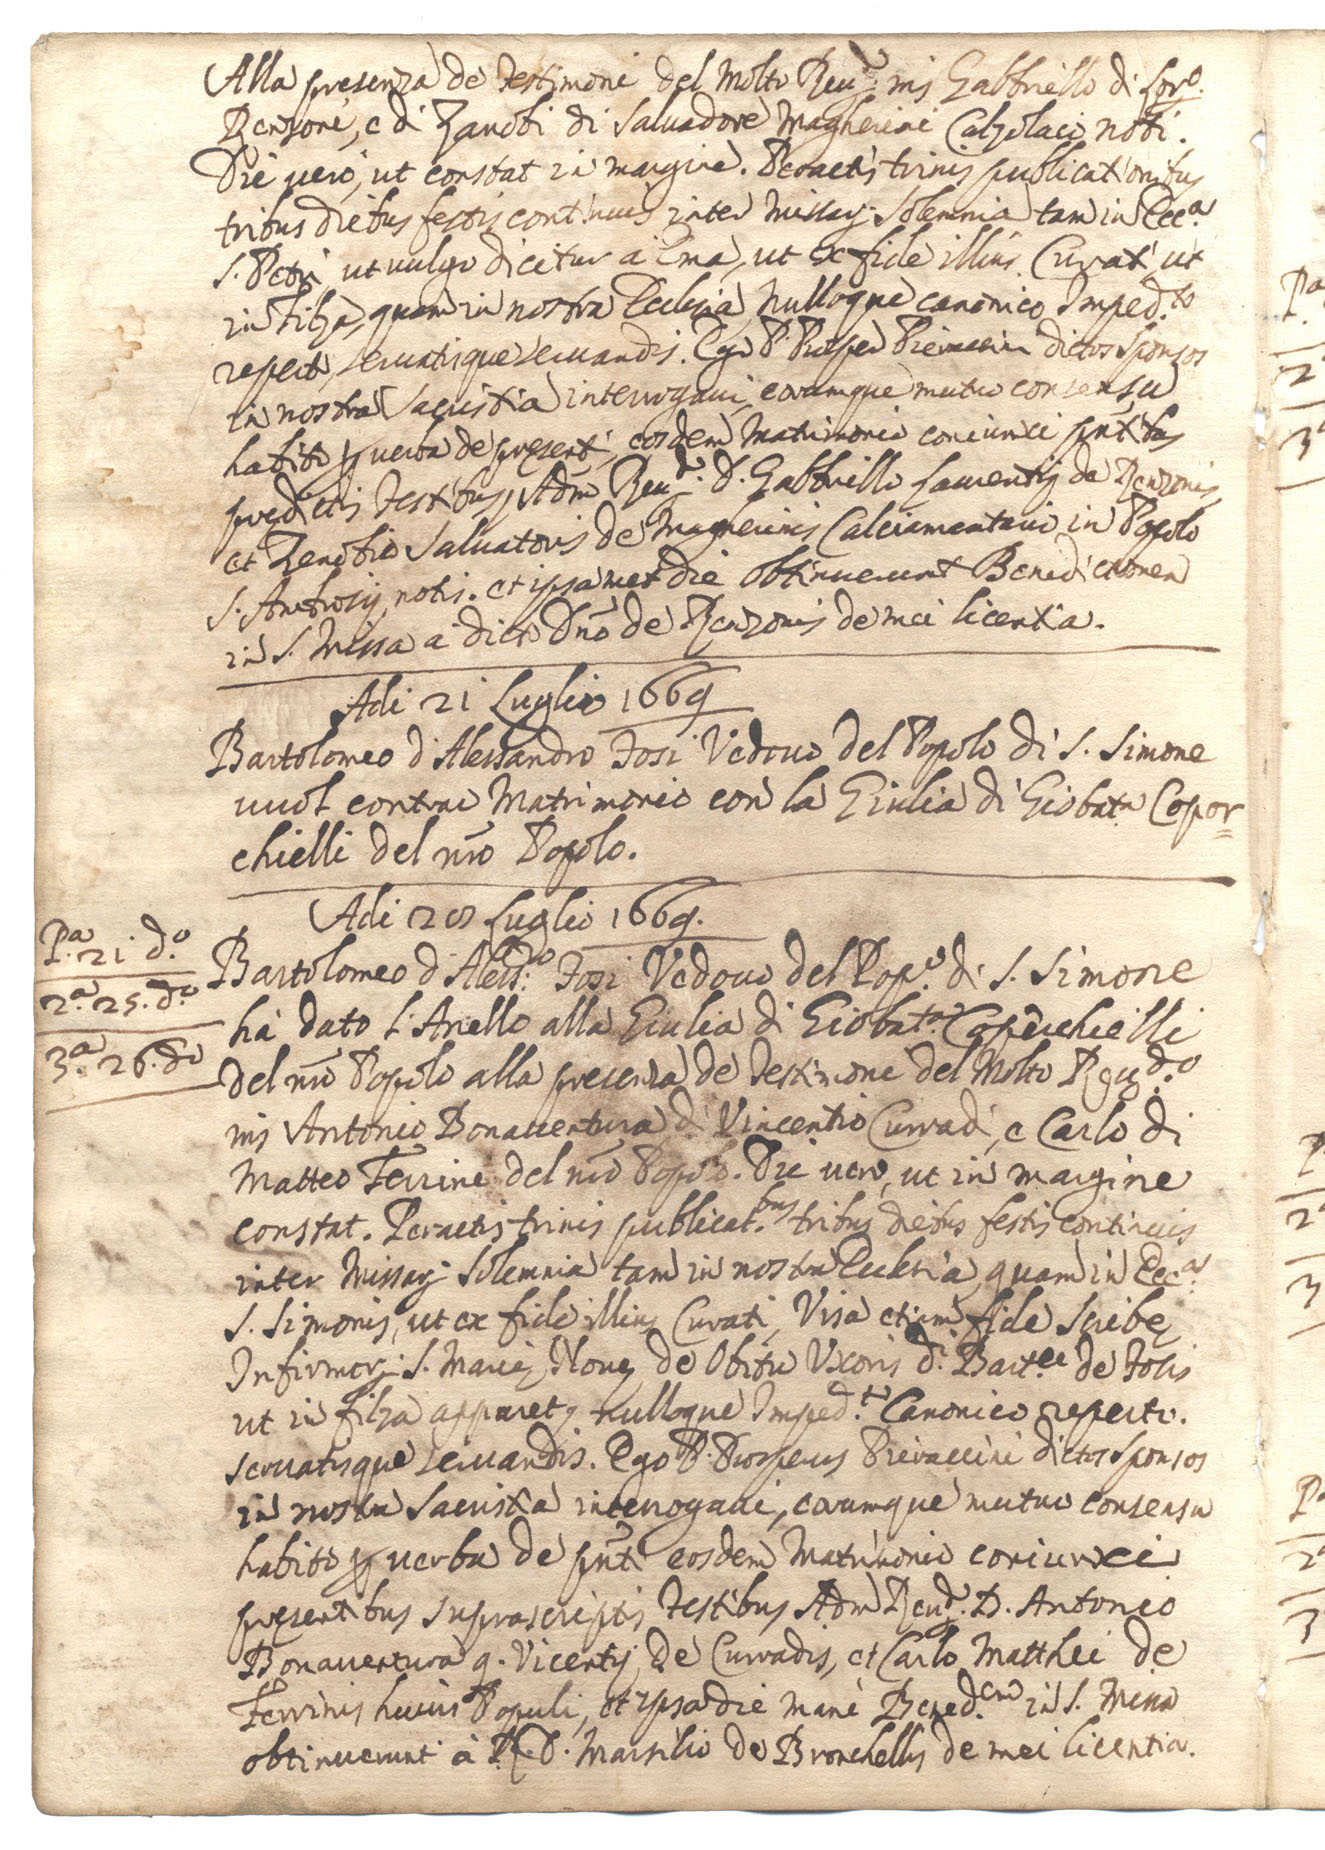 Alla presenza de Testimoni del Molto Reu.do mj Gabbriello di Lor.o
Renzoni, e di Zanobi di Saluadore Magherini Calzolaio noti.
Die uero, ut constat in margine. Peractis trinis publicationibus
tribus diebus festis continuis inter Missar. Solemnia tam in Ecc.a
S. Petri ut uulgo dicitur a Ema, ut ex fide illius Curati ut
in Filza, quam in nostra Ecclesia, nulloque canonico Imped.to
reperto, seruatisque seruandis. Ego P. Prosper Pieraccini dictos sponsos
in nostra Sacristia interrogaui, eorumque mutuo consensu
habito p uerba de presenti, eosdem Matrimonio coniunxi pntibus
predictis Testibus, Adm Reu.do D. Gabbriello Laurentij de Renzonis,
et Zenobio Saluatoris de Magherinis Calciamentario in Popolo
S. Ambrosij, notis. et ipsamet die obtinuerunt Benedictionem
in S. Missa a dicto Dno de Renzonis de mei licentia.
Adi 21 Luglio 1669
Bartolomeo d'Alessandro Fosi Vedouo del Popolo di S. Simone
uuol contrar Matrimonio con la Giulia di Giobat.a Copor=
chielli del nro Popolo.
Adi 28 Luglio 1669.
P.a 21 d.o
2.a 25. d.o
3.a 26. do
Bartolomeo d'Aless.o Fosi Vedouo del Pop.o di S. Simone
ha dato l'Anello alla Giulia di Giobat.a Coperchielli
del nro Popolo alla presenza de Testimone del Molto Reu.do
mj Antonio Bonauentura di Vincentio Curradi, e Carlo di
Matteo Ferrini del nro Popolo. Die uero, ut in margine
constat. Peractis trinis publicat.bus tribus diebus festis continuis
inter Missar. Solemnia tam in nostra Ecclesia, quam in Ecc.a
S. Simonis, ut ex fide illius Curati, Visa etiam fide Scribe
Infirmor. S. Marie Noue de Obitu Vxoris d.i Bart.ei de Fosis
ut in filza apparet, nulloque Imped.to Canonico reperto.
seruatisque seruandis. Ego P. Prosperus Pieraccini dictos sponsos
in nostra Sacristia interrogaui, eorumque mutuo consensu
habito p uerba de pnti eosdem Matrimonio coniunxi
presentibus suprascriptis Testibus Adm Reud. D. Antonio
Bonauentura q. Vicentij de Curradis, et Carlo Matthei de
Ferrinis huius Populi, et ipsa die mane Bened.em in S. Missa
obtinuerunt a D. Marsilio de Bronchellis de mei licentia.